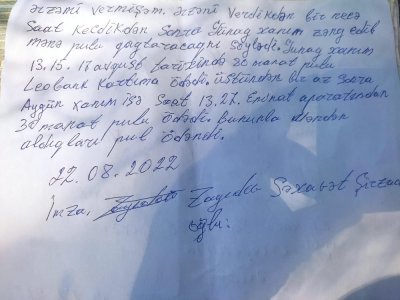 ərzəni vermişəm. ərzəni verdikdən bir neçə
Saat keçdikdən sonra Günaş xanım zəng edib
mənə pulu qaytaracağnı söylədi. Günaş xanım
13.15. 17 avqust tarixində 30 manat pulu
Leobank kartıma ödədi. Üstündən bir az sonra
Aygün xanım isə saat 13.27. Eminat aparatından
30 manat pulu ödədi. Bununla məndən
aldıqları pul ödəndi.
22.08.2022
İmza, Səxavət Şirzad
oğlu: